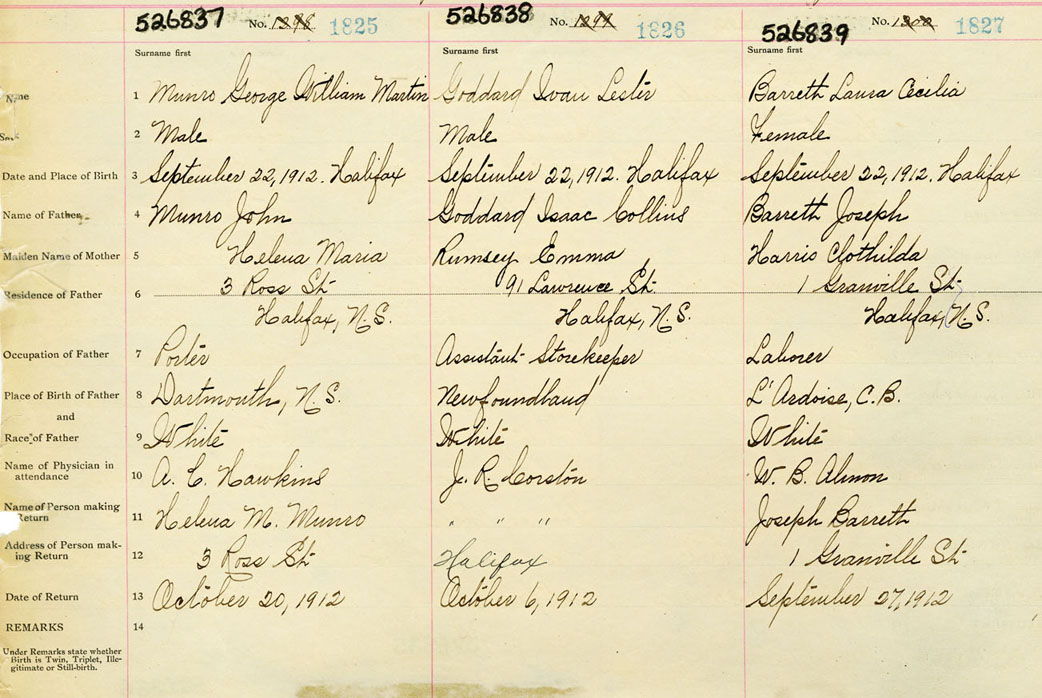 526837 No. 1825 526838 No. 1826 526839 No. 1827
Surname first Surname first Surname first
Name 1 Munro George William Martin Goddard Ivan Lester Barreth Laura Cecilia
2 Male Male Female
Date and Place of Birth 3 September 22, 1912. Halifax September 22, 1912. Halifax September 22, 1912. Halifax
Name of Father 4 Munro John Goddard Isaac Collins Barreth Joseph
Maiden Name of Mother 5 Helena Maria Rumsey Emma Harris Clothilda
Residence of Father 6 3 Ross St 91 Lawrence St. 1 Granville St
Halifax, N.S. Halifax, N.S. Halifax, N.S.
Occupation of Father 7 Porter Assistant Storekeeper Laborer
Place of Birth of Father 8 Dartmouth, N.S. Newfoundland L'Ardoise, C.B.
and
Race of Father 9 White White White
Name of Physician in
attendance 10 A. C. Hawkins J. R. Corston W. B. Almon
Name of Person making
Return 11 Helena M. Munro " " " Joseph Barreth
Address of Person mak-
ing Return 12 3 Ross St Halifax 1 Granville St
Date of Return 13 October 20, 1912 October 6, 1912 September 27, 1912
REMARKS 14
Under Remarks state whether
Birth is Twin, Triplet, Ille-
gitimate or Still-birth.